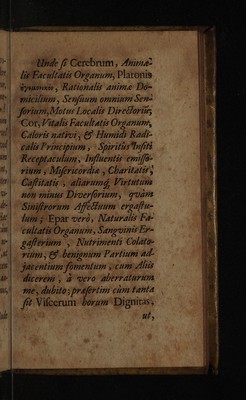 Unde si Cerebrum, Anima-
lis Facultatis Organum, Platonis
Rationalis anima Do-
micilium, Sensuum omnium Sen-
sorium, Motus Localis Directoriū,
Cor, Vitalis Facultatis Organum,
Caloris nativi, & Humidi Radi-
calis Principium, Spiritûs Insiti
Receptaculum, Influentis emisso-
rium, Misericordiæ, Charitatis,
Castitatis, aliarumq; Virtutum
non minus Diversorium, quàm
Sinistrorum Affectuum ergastu-
lum; Epar verò, Naturalis Fa-
cultatis Organum, Sangvinis Er-
gasterium, Nutrimenti Colato-
rium, & benignum Partium ad-
jacentium fomentum, cum Aliis
dicerem, à vero aberraturum
me, dubito; præsertim cùm tanta
sit Viscerum horum Dignitas,
ut,